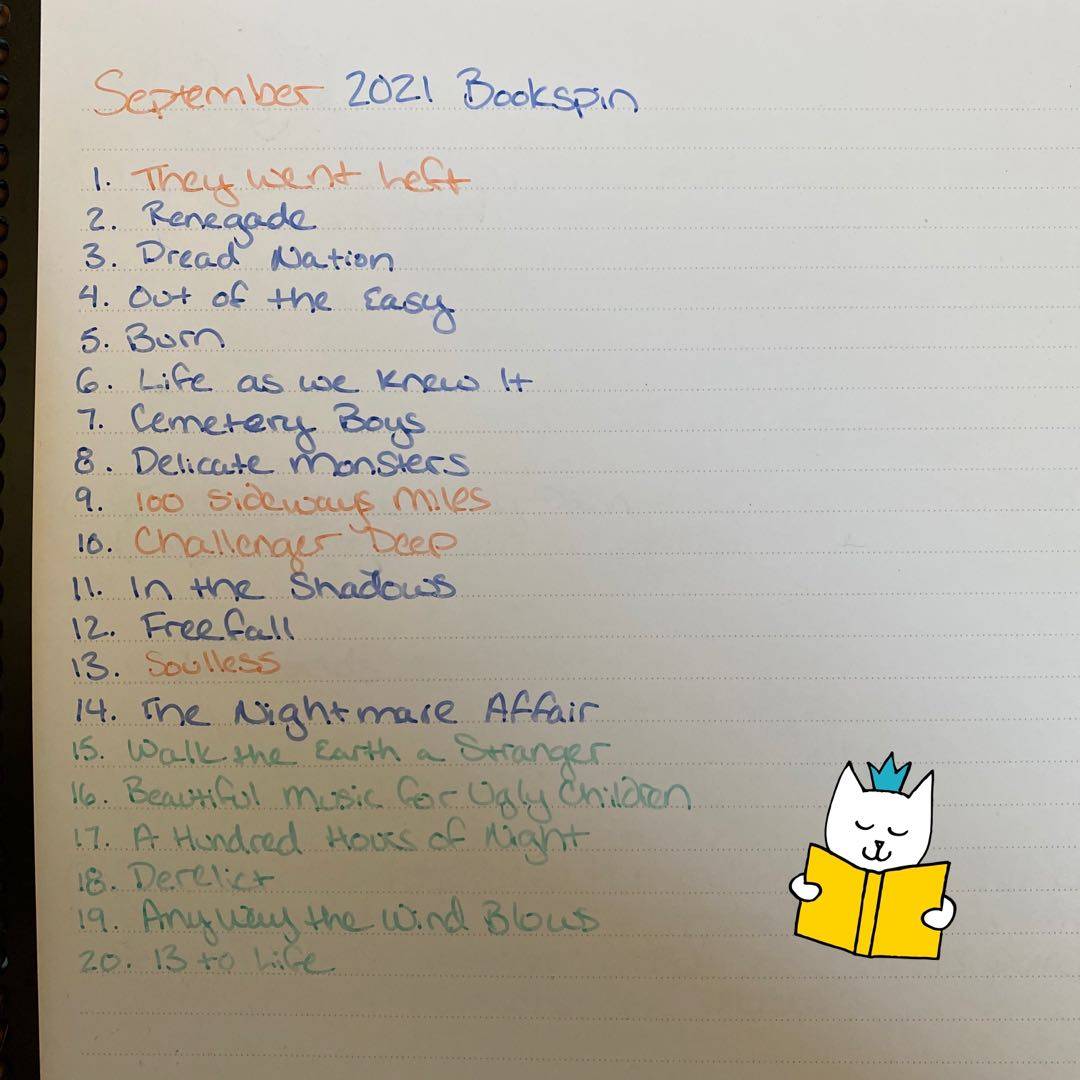 September 2021 Bookspin
1. They Went Left
2. Renegade
3. Dread Nation
4. Out of the Easy
5. Burn
6. Life as we Knew It
7. Cemetery Boys
8. Delicate Monsters
9. 100 Sideways Miles
10. Challenger Deep
11. In the Shadows
12. Freefall
13. Soulless
14. The Nightmare Affair
15. Walk the Earth a Stranger
16. Beautiful Music for Ugly Children
17. A Hundred Hours of Night
18. Derelict
19. Any Way the Wind Blows
20. 13 to Life